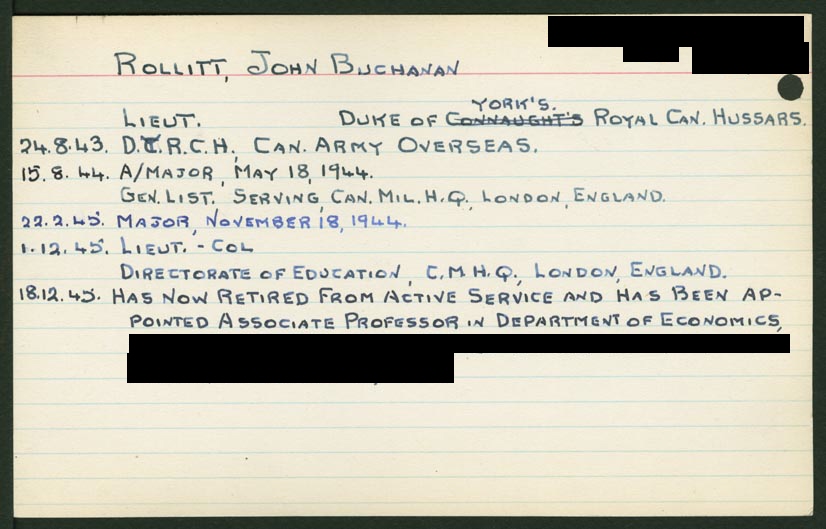 ROLLITT, JOHN BUCHANAN
YORK'S.
LIEUT. DUKE OF CONNAUGHT'S ROYAL CAN. HUSSARS.
24.8.43. D.Y.R.C.H., CAN. ARMY OVERSEAS.
15.8.44. A/MAJOR, MAY 18, 1944.
GEN. LIST. SERVING, CAN. MIL. H.Q., LONDON, ENGLAND.
22.2.45. MAJOR, NOVEMBER 18, 1944.
1.12.45. LIEUT. - COL
DIRECTORATE OF EDUCATION, C.M.H.Q., LONDON, ENGLAND.
18.12.45. HAS NOW RETIRED FROM ACTIVE SERVICE AND HAS BEEN AP-
POINTED ASSOCIATE PROFESSOR IN DEPARTMENT OF ECONOMICS,